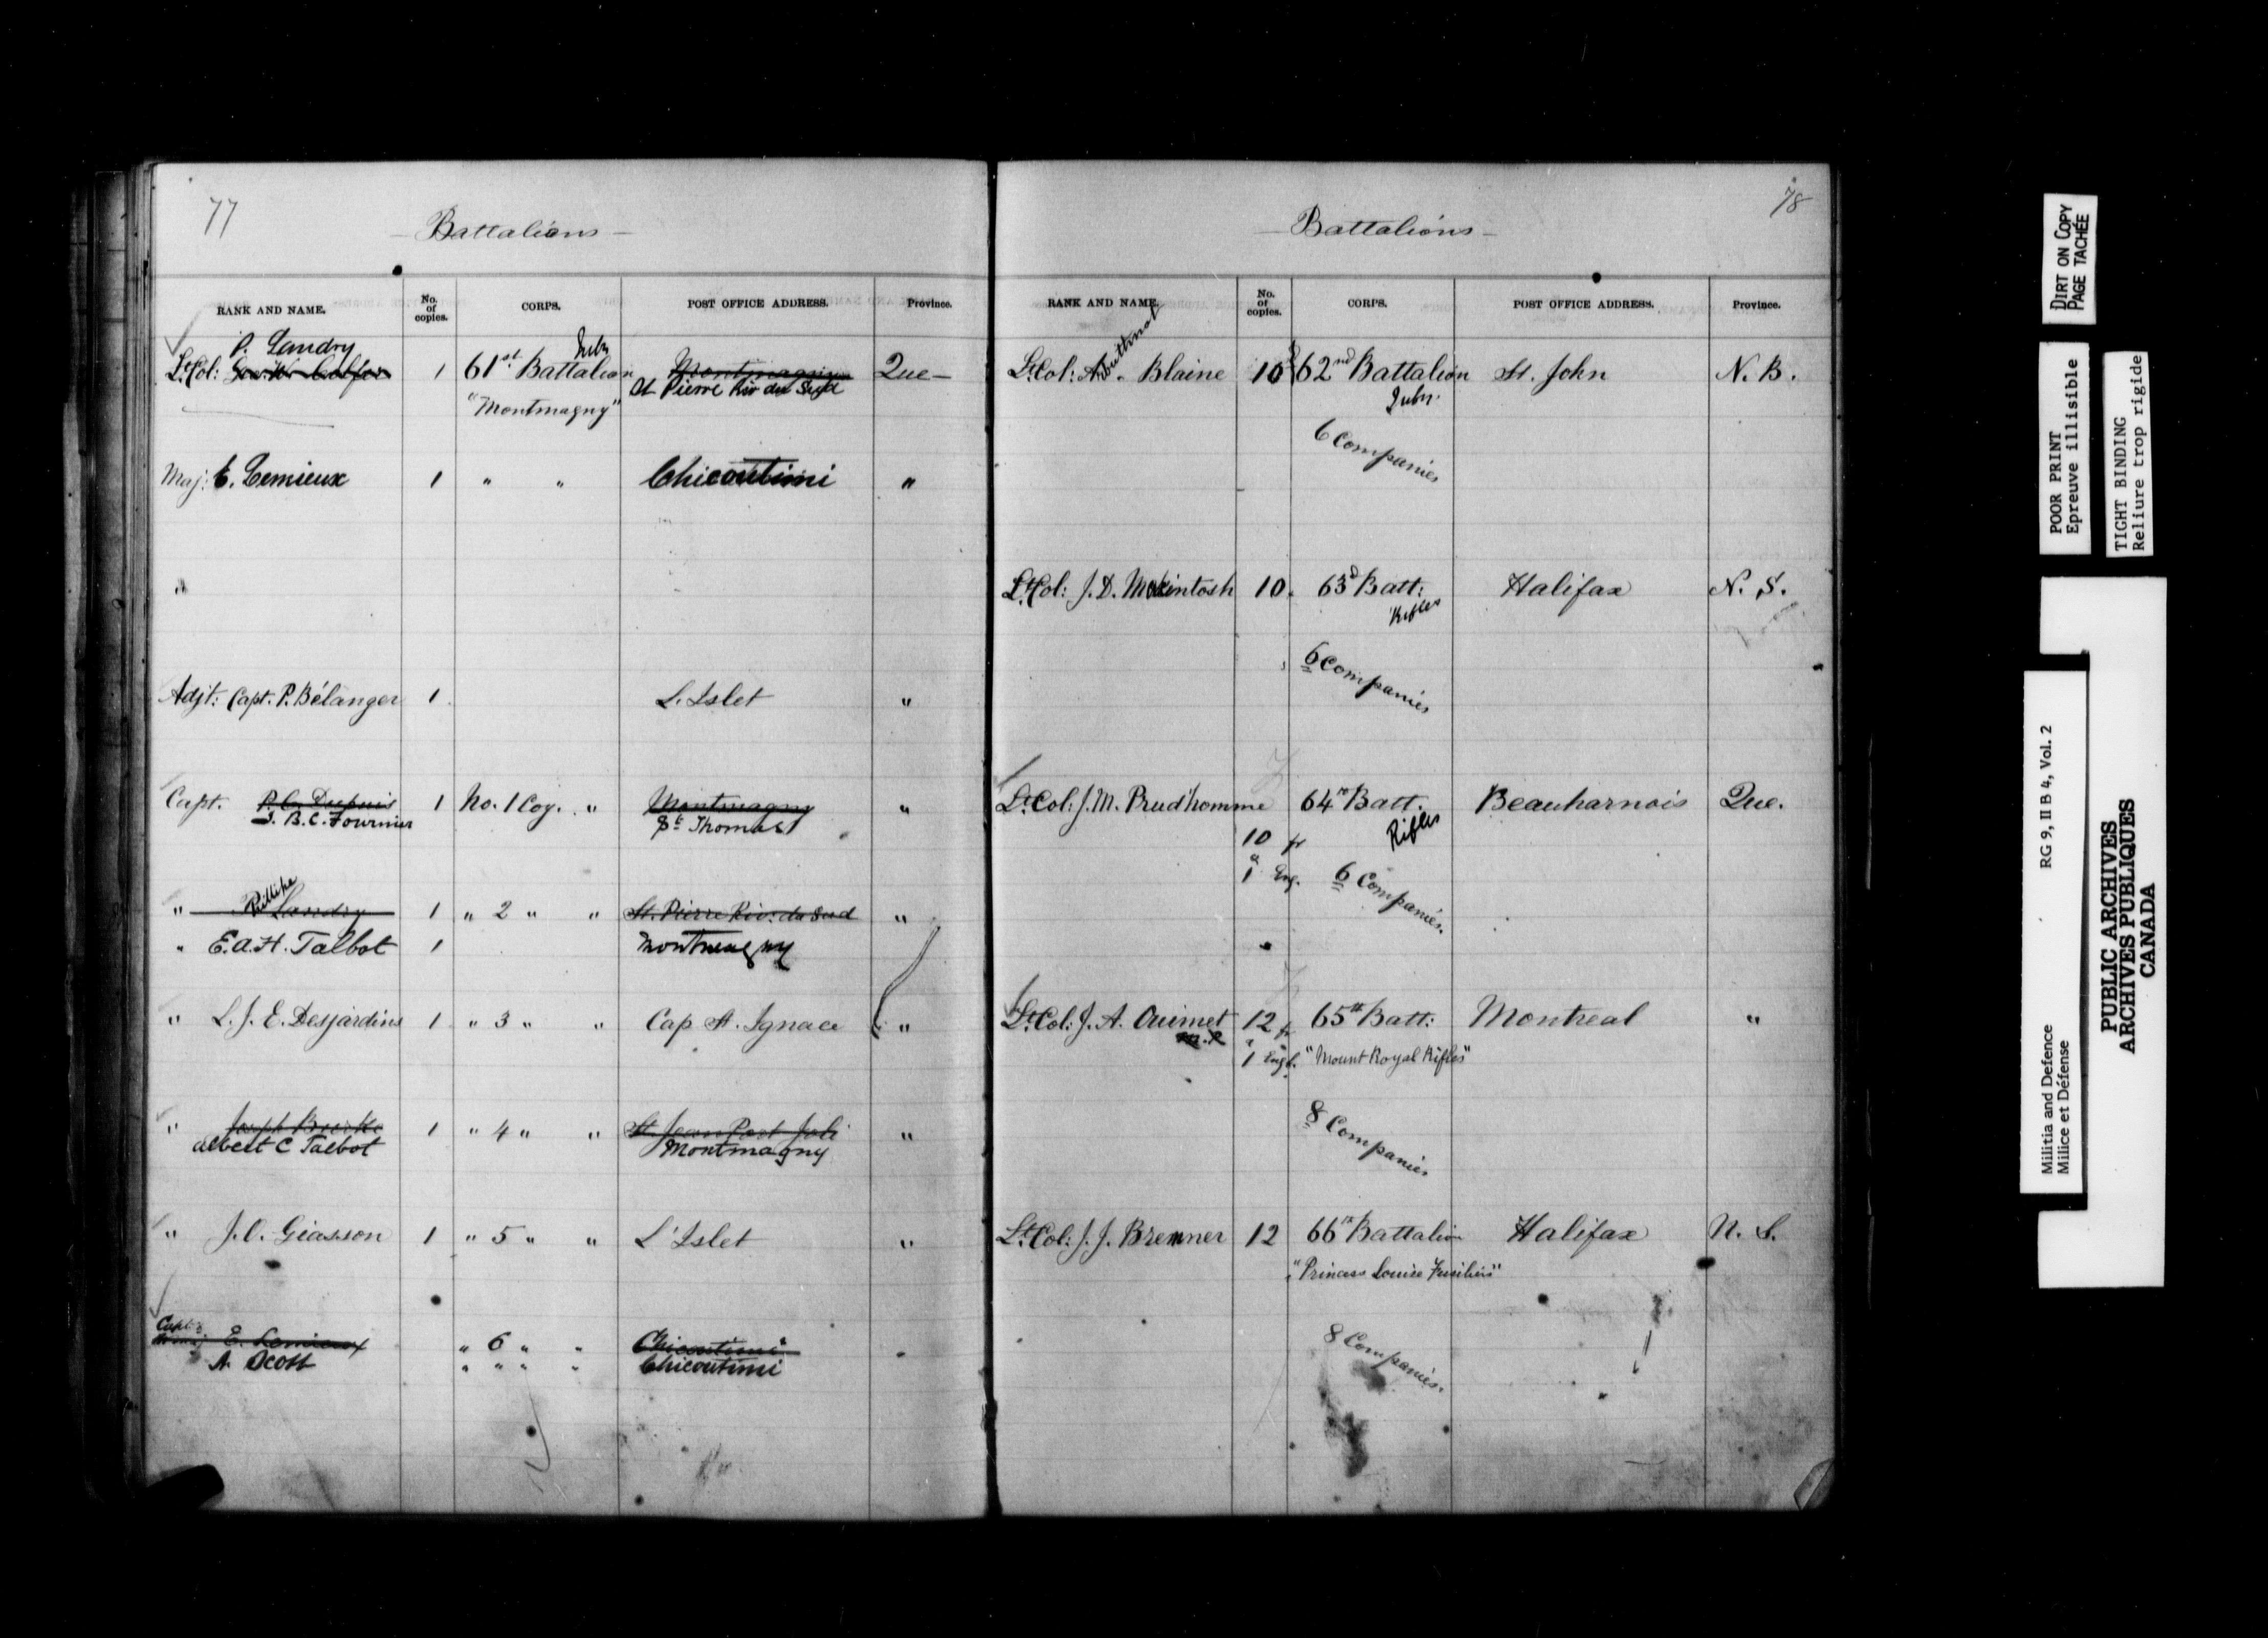 77
Battalions
RANK AND NAME. No. of copies. CORPS. POST OFFICE ADDRESS. Province.
P. Landry
Lt. Col: 1 61st Battalion Infn Montmagny Que
"Montmagny" St Pierre Riv du Sud
Maj: E. Lemieux 1 " " Chicoutimi "
"
Adjt: Capt. P. Bélanger 1 L. Islet "
Capt. P. C. Dupuis 1 No. 1 Coy. " Montmagny "
J. B. C. Fournier St Thomas
" Phillipe Landry 1 " 2 " " St. Pierre Riv: du Sud "
" E. A. H. Talbot 1 Montmagny
" L. J. E. Desjardins 1 " 3 " " Cap St. Ignace "
" Joseph 1 " 4 " " St. Jean Port Joli "
Albert C Talbot Montmagny
" J. O. Giasson 1 " 5 " " L'Islet "
Capt
E. Lemieux " 6 " " Chicoutimi "
A. Scott " " " " Chicoutimi
78
Battalions
RANK AND NAME. No. of copies. CORPS. POST OFFICE ADDRESS. Province.
Lt. Col: A. Blaine 10 62nd Battalion St. John N. B.
Infn.
6 Companies
Lt. Col: J. D. McKintosh 10. 63d Batt: Halifax N. S.
Rifles
6 Companies
Lt. Col: J. M. Prud'homme 64th Batt. Beauharnois Que.
10 fr Rifles
&
1 Eng. 6 Companies.
Lt. Col: J. A. Ouimet 12 fr 65th Batt: Montreal "
M.P. &
1 Engl. "Mount Royal Rifles"
8 Companies
Lt. Col: J. J. Bremner 12 66th Battalion Halifax N. S.
"Princess Louise Fusiliers"
8 Companies.
DIRT ON COPY
PAGE TACHÉE
POOR PRINT
Epreuve illisible
TIGHT BINDING
Reliure trop rigide
RG 9, II B 4, Vol. 2
Militia and Defence
Milice et Défense
PUBLIC ARCHIVES
ARCHIVES PUBLIQUES
CANADA